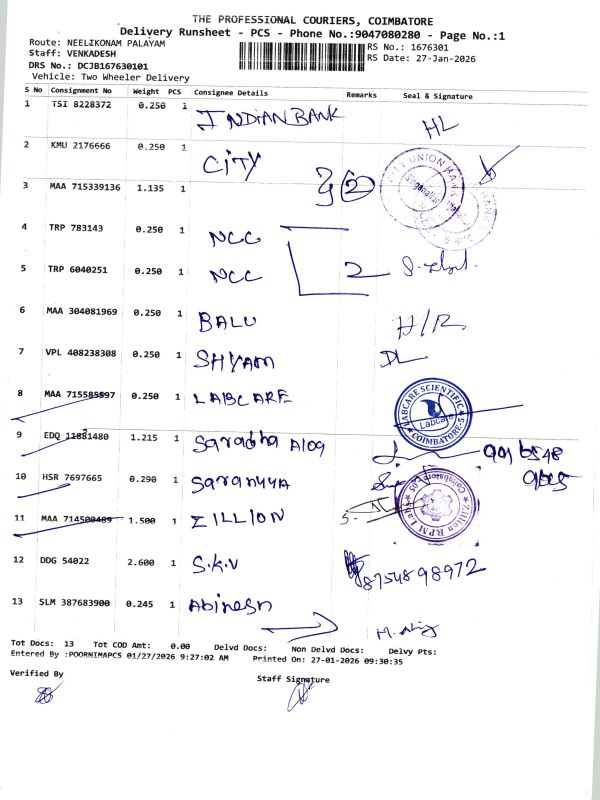 THE PROFESSIONAL COURIERS, COIMBATORE
Delivery Runsheet - PCS - Phone No.:9047080280 - Page No.:1
Route: NEELIKONAM PALAYAM
RS No.: 1676301
Staff: VENKADESH
RS Date: 27-Jan-2026
DRS No.: DCJB167630101
Vehicle: Two Wheeler Delivery
S No Consignment No Weight PCS Consignee Details Remarks Seal & Signature
1 TSI 8228372 0.250 1 INDIAN BANK HL
2 KMU 2176666 0.250 1 CITY
3 MAA 715339136 1.135 1 2
4 TRP 783143 0.250 1 NCC
5 TRP 6040251 0.250 1 NCC 2
6 MAA 304081969 0.250 1 BALU H/R
7 VPL 408238308 0.250 1 SHYAM DL
8 MAA 715585897 0.250 1 LABCARE
LABCARE SCIENTIFIC
Labcare
COIMBATORE-5
9 EDQ 11881480 1.215 1 Saradha A109
10 HSR 7697665 0.290 1 Saranyya
11 MAA 714500489 1.500 1 ZILLION
Zillion RPM Labs
Coimbatore-05
12 DDG 54022 2.600 1 S.K.V 8754898972
13 SLM 387683900 0.245 1 Abinesh
Tot Docs: 13 Tot COD Amt: 0.00 Delvd Docs: Non Delvd Docs: Delvy Pts:
Entered By :POORNIMAPCS 01/27/2026 9:27:02 AM Printed On: 27-01-2026 09:30:35
Verified By
Staff Signature